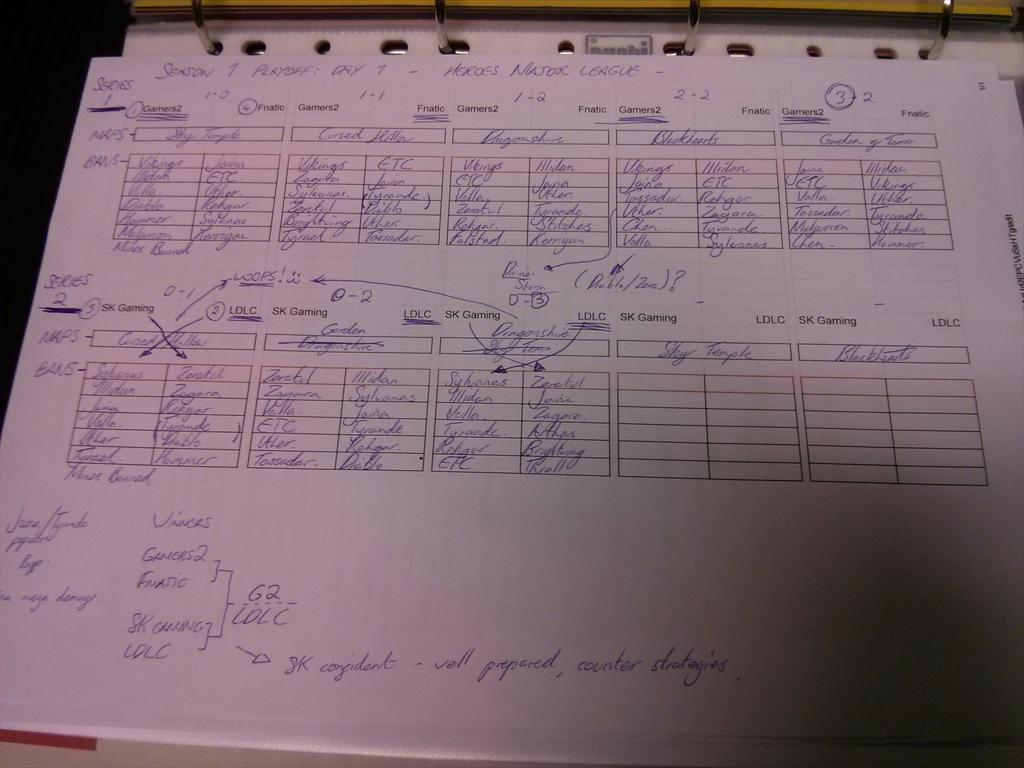 SEASON 1 PLAYOFF: DAY 1 - HEROES MAJOR LEAGUE -
SERIES 1
1-0 1-1 1-2 2-2 3-2
1 Gamers2 4 Fnatic Gamers2 Fnatic Gamers2 Fnatic Gamers2 Fnatic Gamers2 Fnatic
MAPS- Sky Temple Cursed Hollow Dragonshire Blackhearts Garden of Terror
BANS- Vikings Jaina Vikings ETC Vikings Illidan Vikings Illidan Jaina Illidan
Illidan ETC Zagara Jaina ETC Jaina Jaina ETC ETC Vikings
Valla Uther Sylvanas Tyrande Valla Uther Tassadar Rehgar Valla Uther
Diablo Rehgar Zeratul Diablo Zeratul Tyrande Uther Zagara Tassadar Tyrande
Hammer Sylvanas Brightwing Uther Rehgar Stitches Chen Tyrande Malurion Stitches
Malurion Kerrigan Tyrael Tassadar Falstad Kerrigan Valla Sylvanas Chen Hammer
Mines Banned
WOOPS! Divine Storm (Diablo/Zera)?
SERIES 2
0-1 0-2 0-3 - -
3 SK Gaming 2 LDLC SK Gaming LDLC SK Gaming LDLC SK Gaming LDLC SK Gaming LDLC
Garden Dragonshire
MAPS- Cursed Hollow Dragonshire Sky Tem Sky Temple Blackhearts
BANS- Sylvanas Zeratul Zeratul Illidan Sylvanas Zeratul
Illidan Zagara Zagara Sylvanas Illidan Jaina
Jaina Rehgar Valla Jaina Valla Zagara
Valla Tyrande ETC Tyrande Tyrande Arthas
Uther Diablo Uther Rehgar Rehgar Brightwing
Tyrael Hammer Tassadar Diablo ETC Thrall
Mines Banned
Jaina/Tyrande
WINNERS
GAMERS2
FNATIC
G2
LDLC
mega damage
SK GAMING
LDLC
SK confident - well prepared, counter strategies.